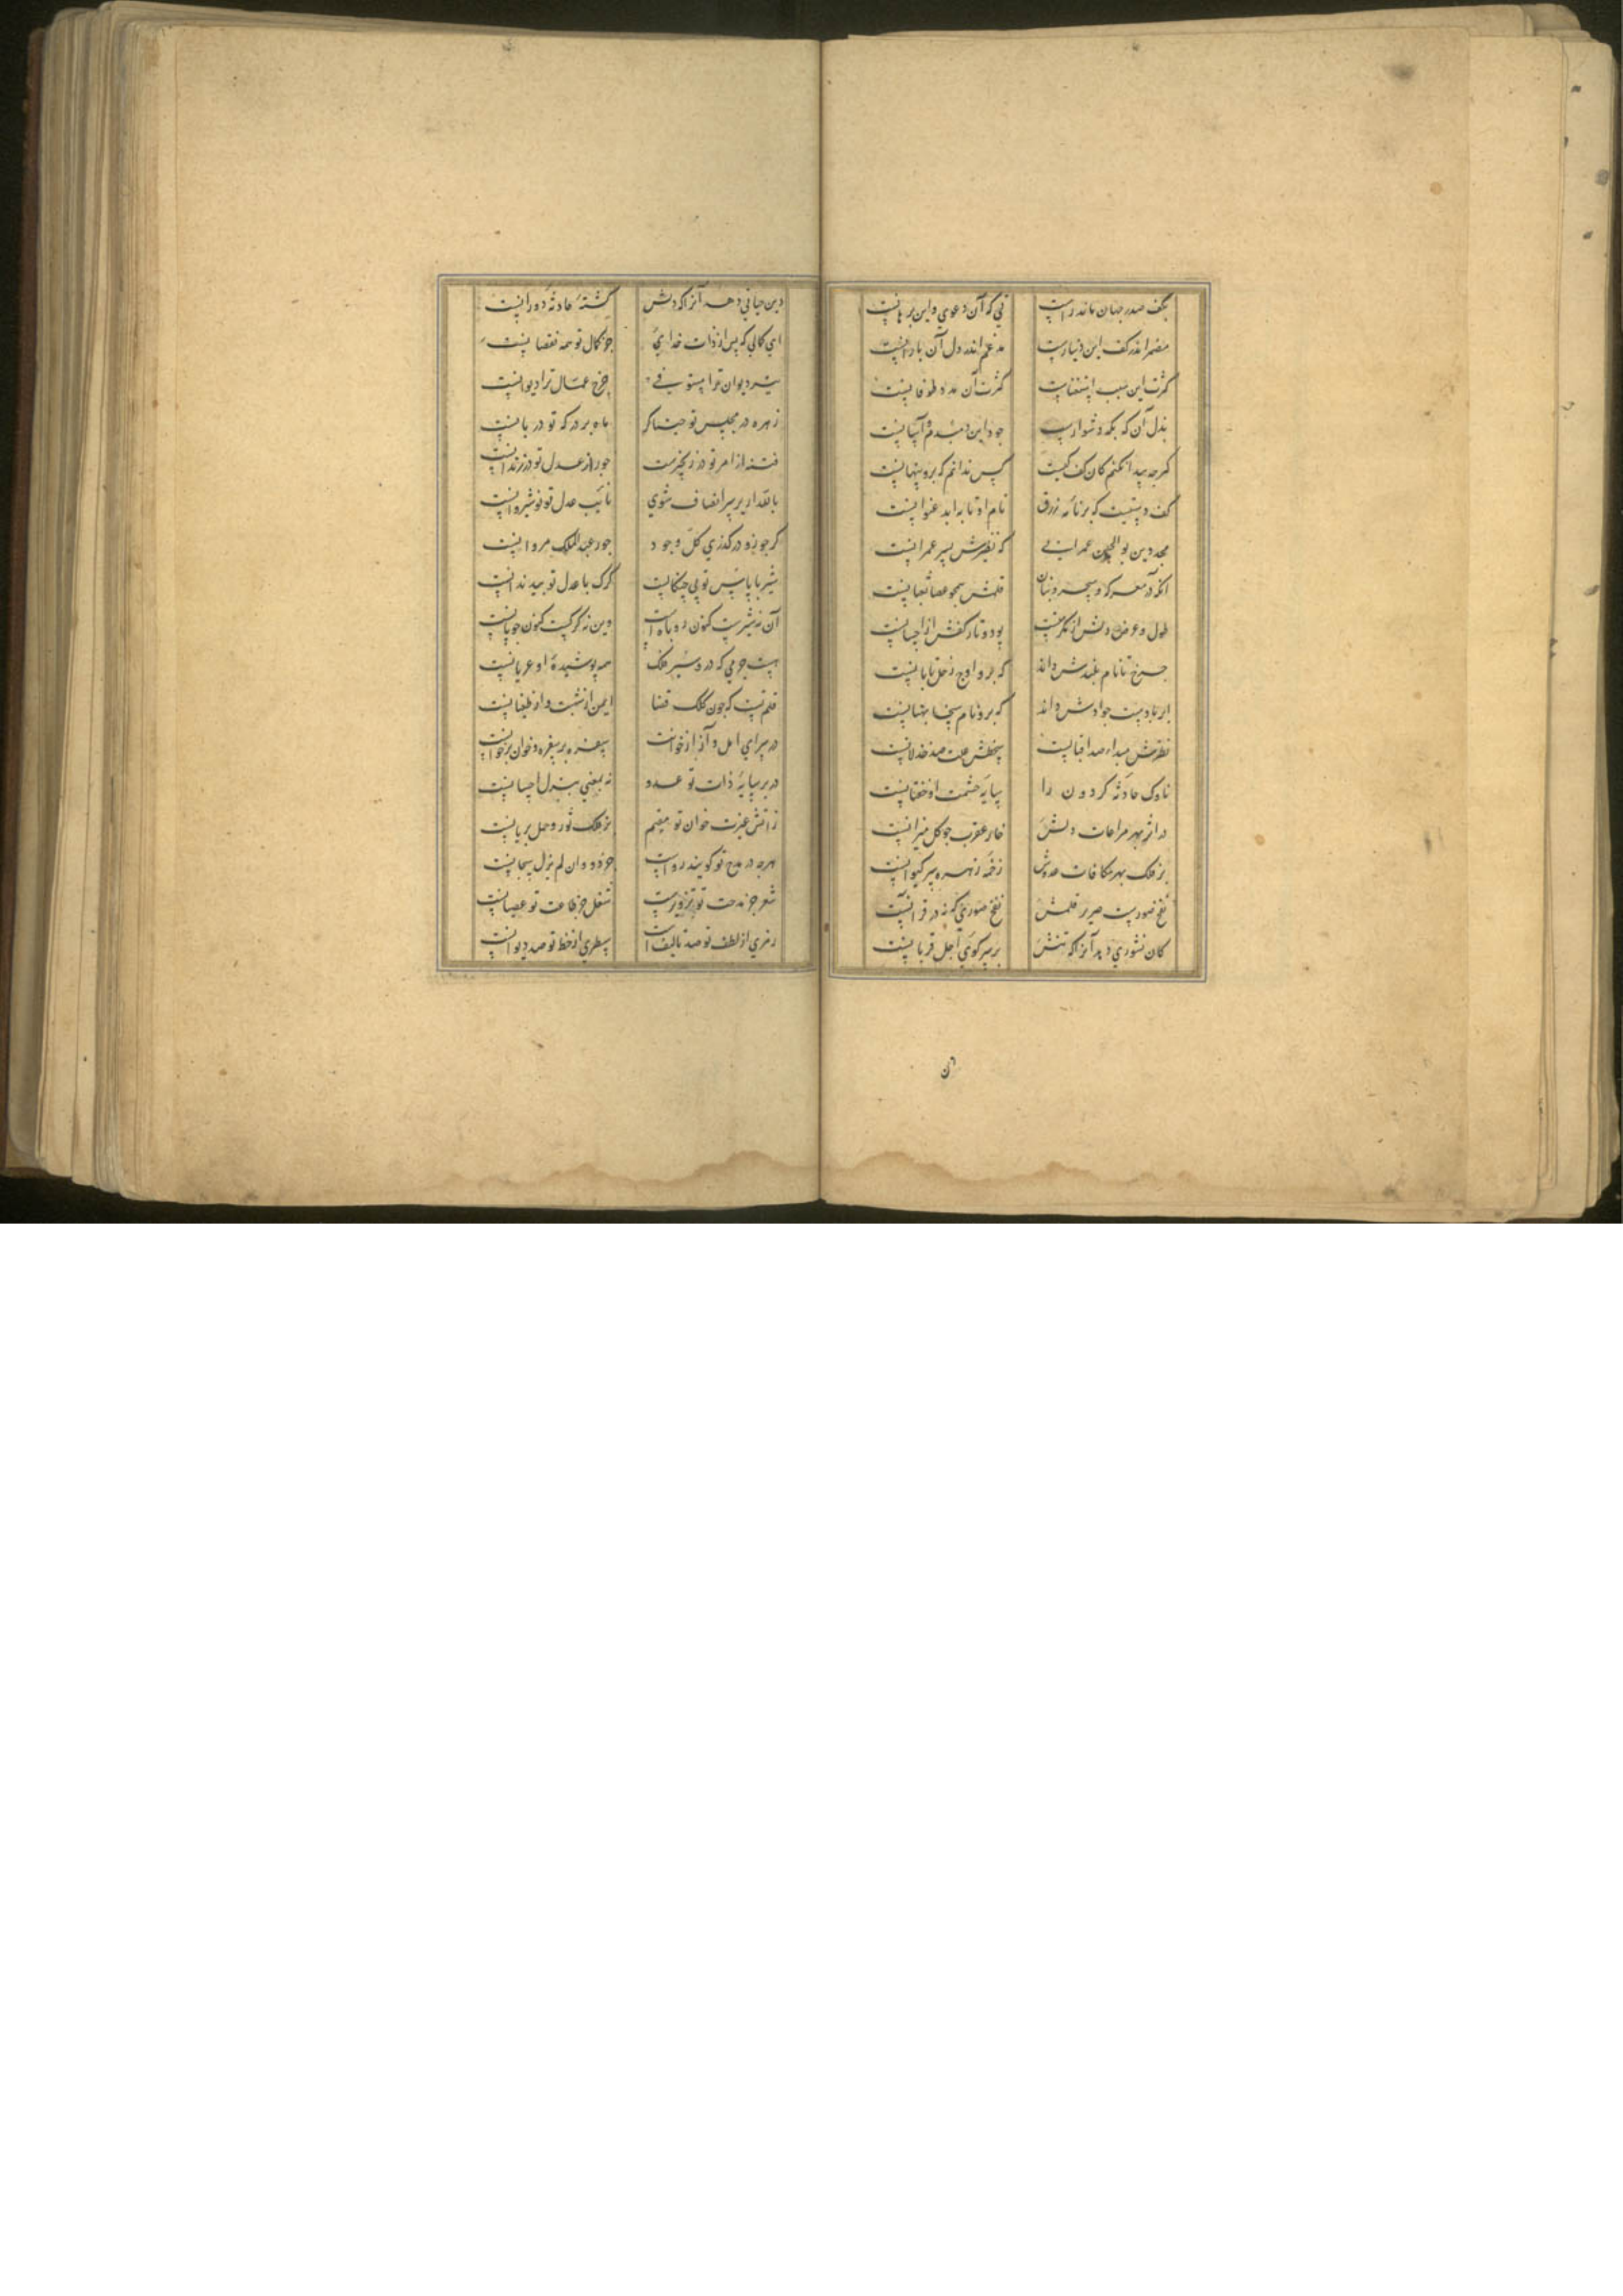 بکف صدر جهان ماند راست
نی که آن دعوی و این برهانست
مضمر اندر کف این دینارست
مدغم اندر دل آن بارانست
کثرت این سبب استغناست
کثرت آن مدد طوفانست
بذل آن که بکه دشوارست
جود این دمبدم و آسانست
کرچه پیدا نکنم کان کف کیست
کس ندانم که برو پنهانست
کف دستیست که بر نامه رزق
نام او تا بابد عنوانست
مجد دین بوالحسن عمرانی
که نظیرش پسر عمرانست
آنکه در معرکه سحر و بنان
قلمش همچو عصا ثعبانست
طول و عرض دلش از مکرمتست
پود و تار کفش از احسانست
چرخ تا نام بلندش داند
که برو اوج زحل تابانست
ابر تا دست جوادش داند
که برو نام سخا بهتانست
نظرش مبداء صد اقبالست
سخطش علت صد خذلانست
ناوک حادثه کردون را
سایه حشمت او خفتانست
در اثر بهر مراعات دلش
خار عقرب چو کل میزانست
بر فلک بهر مکافات عدوش
زخمه زهره سر کیوانست
نفخ صورست صریر قلمش
نفخ صوری که نه در قرآنست
کان نشوری دهد آنرا که تنش
بر سر کوی اجل قربانست
ن
وین حیاتی دهد آنرا که دلش
کشته حادثه دورانست
ای کمالی که پس از ذات خدای
جز کمال تو همه نقصانست
تیر دیوان ترا مستوفی
چرخ عمال ترا دیوانست
زهره در مجلس تو خنیاکر
ماه بر درکه تو دربانست
فتنه از امر تو در زنجیرست
جور از عدل تو در زندانست
بالله ار بر سر انصاف شوی
نایب عدل تو نوشیروانست
کر چو زو درکذری کل وجود
جور عبدالملک مروانست
شیر با پاس تو بی چنکالست
کرک با عدل تو بی دندانست
آن نه شیرست کنون روباهست
وین نه کرکست کنون چوپانست
هست جرمی که درو شیر فلک
همه پوشیده او عریانست
قلم تست که چون کلک قضا
ایمن از شبهت و از طغیانست
در سرای امل و آز از خوانت
سفره بر سفره و خوان بر خوانست
در بر سایه ذات تو عدو
نه بمعنی بتدل احسانست
ز آتش غیرت خوان تو مقیم
بر فلک ثور و حمل بریانست
هرچه در مدح تو کویند رواست
جز دو و ان لم یزل سبحانست
شعر جز مدحت تو تزویرست
شغل جز طاعت تو عصیانست
رمزی از لطف تو صد تالیفست
سطری از خط تو صد دیوانست